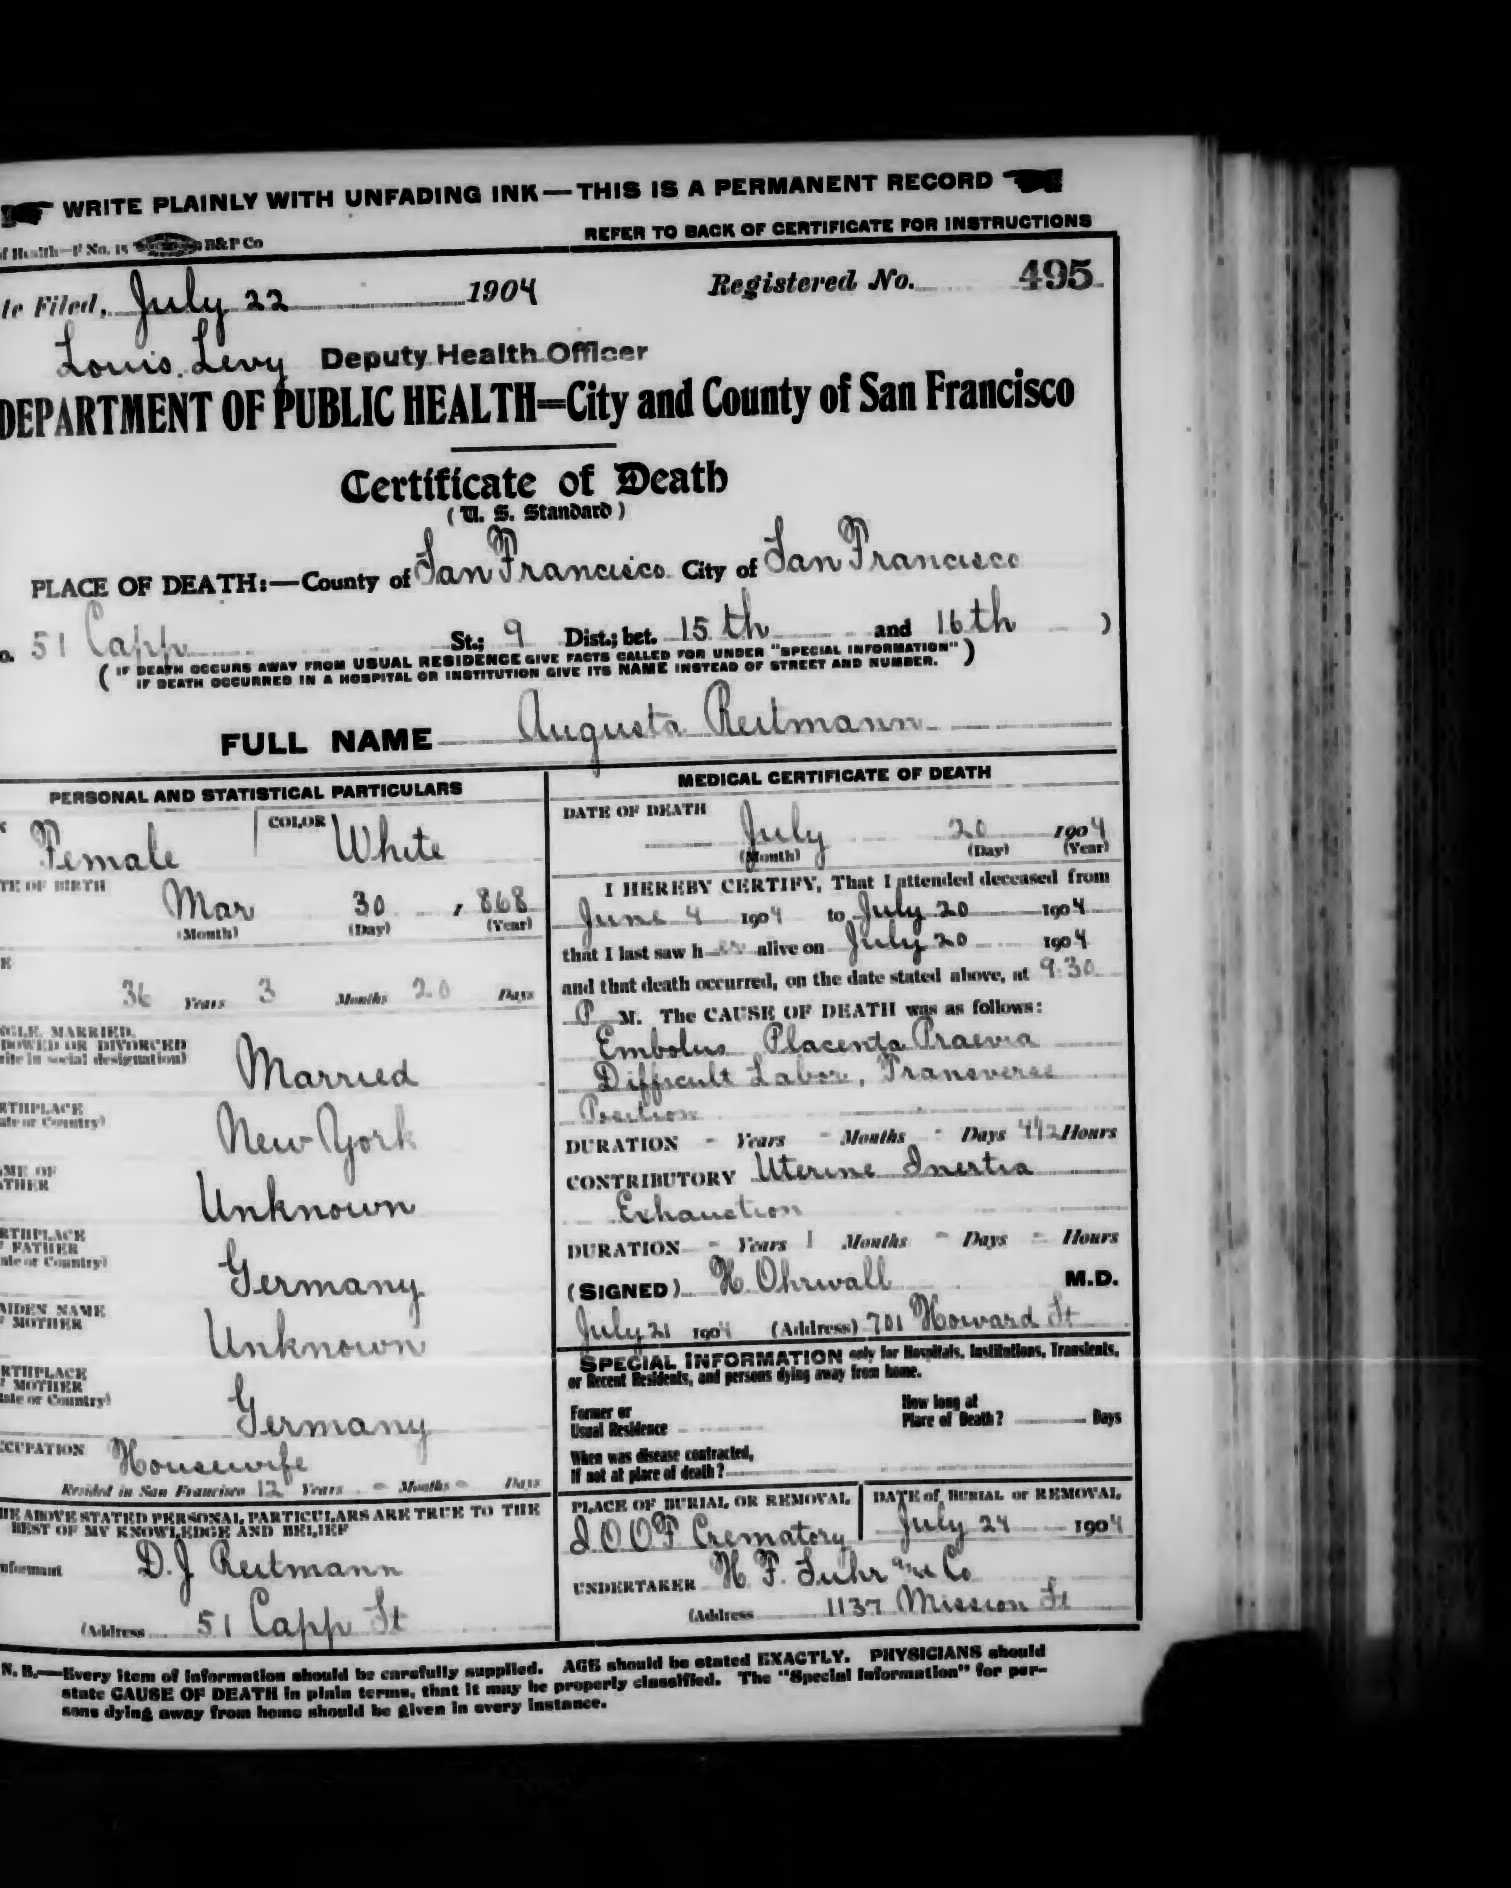 WRITE PLAINLY WITH UNFADING INK—THIS IS A PERMANENT RECORD
of Health—F No. 15 B&P Co REFER TO BACK OF CERTIFICATE FOR INSTRUCTIONS
te Filed, July 22 1904 Registered No. 495
Louis Levy Deputy Health Officer
DEPARTMENT OF PUBLIC HEALTH=City and County of San Francisco
Certificate of Death
(U. S. Standard)
PLACE OF DEATH:—County of San Francisco City of San Francisco
o. 51 Capp St.; 9 Dist.; bet. 15th and 16th )
( IF DEATH OCCURS AWAY FROM USUAL RESIDENCE GIVE FACTS CALLED FOR UNDER "SPECIAL INFORMATION" )
IF DEATH OCCURRED IN A HOSPITAL OR INSTITUTION GIVE ITS NAME INSTEAD OF STREET AND NUMBER.
FULL NAME Augusta Reitmann
PERSONAL AND STATISTICAL PARTICULARS
X Female COLOR White
TE OF BIRTH
Mar 30 , 868
(Month) (Day) (Year)
E
36 Years 3 Months 20 Days
NGLE, MARRIED,
DOWED OR DIVORCED
rite in social designation)
Married
RTHPLACE
ate or Country)
New York
ME OF
ATHER
Unknown
RTHPLACE
F FATHER
ate or Country)
Germany
AIDEN NAME
F MOTHER
Unknown
RTHPLACE
F MOTHER
tate or Country)
Germany
CCUPATION Housewife
Resided in San Francisco 12 Years - Months - Days
HE ABOVE STATED PERSONAL PARTICULARS ARE TRUE TO THE
BEST OF MY KNOWLEDGE AND BELIEF
nformant D. J Reitmann
(Address 51 Capp St
MEDICAL CERTIFICATE OF DEATH
DATE OF DEATH
July 20 1904
(Month) (Day) (Year)
I HEREBY CERTIFY, That I attended deceased from
June 4 1904 to July 20 1904
that I last saw her alive on July 20 1904
and that death occurred, on the date stated above, at 9:30
P M. The CAUSE OF DEATH was as follows:
Embolus Placenta Praevia
Difficult Labor, Transverse
Position
DURATION - Years - Months - Days Hours
CONTRIBUTORY Uterine Inertia
Exhaustion
DURATION - Years 1 Months - Days - Hours
(SIGNED) H. Ohrwall M.D.
July 21 1904 (Address) 701 Howard St
SPECIAL INFORMATION only for Hospitals, Institutions, Transients,
or Recent Residents, and persons dying away from home.
Former or
Usual Residence
How long at
Place of Death? Days
When was disease contracted,
If not at place of death?
PLACE OF BURIAL OR REMOVAL DATE of BURIAL or REMOVAL
I O O F Crematory July 24 1904
UNDERTAKER H. F. Suhr and Co
(Address 1137 Mission St
N. B.—Every item of information should be carefully supplied. AGE should be stated EXACTLY. PHYSICIANS should
state CAUSE OF DEATH in plain terms, that it may be properly classified. The "Special Information" for per-
sons dying away from home should be given in every instance.